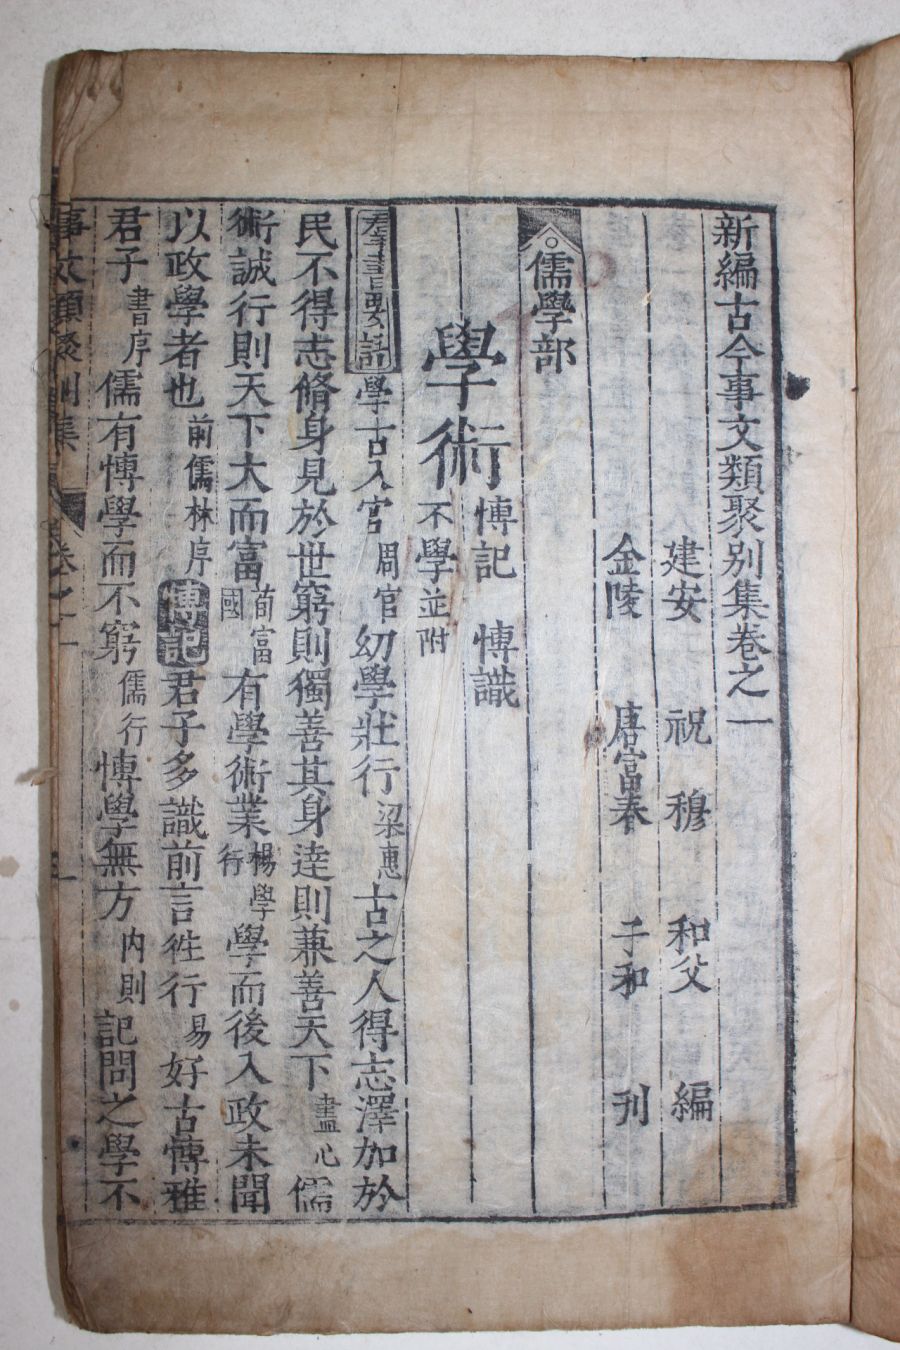 新編古今事文類聚别集卷之一
建安 祝穆 和父 編
金陵 唐富春 子和 刊
儒學部
學術 博記 博識 不學並附
羣書要語 學古入官 周官 幼學壯行 梁惠 古之人得志澤加於
民不得志脩身見於世窮則獨善其身達則兼善天下 盡心 儒
術誠行則天下大而富 荀富國 有學術業 楊學行 學而後入政未聞
以政學者也 前儒林序 博記 君子多識前言徃行 易 好古博雅
君子 書序 儒有博學而不窮 儒行 博學無方 内則 記問之學不
事文類聚别集 卷之一 一